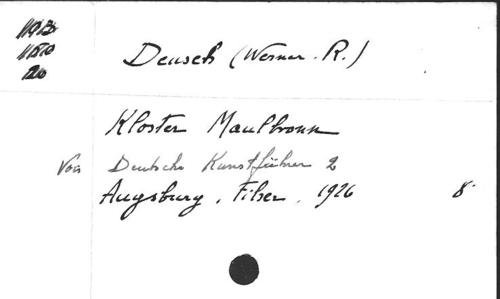 1193
1150
20
Deusch (Werner. R.)
Kloster Maulbronn
Voir Deutsche Kunstführer 2
Augsburg, Filser, 1926 8°